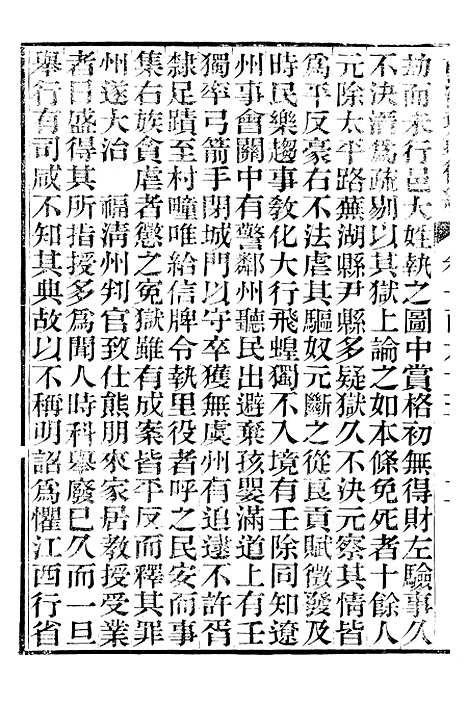 劫而未行邑大姓執之圖中賞格初無得財左驗事久
不決滔爲疏剔以其獄上論之如本條免死者十餘人
元除太平路蕪湖縣尹縣多疑獄久不決元察其情皆
爲平反豪右不法虐其驅奴元斷之從良貢賦徵發及
時民樂趨事敎化大行飛蝗獨不入境有壬除同知遼
州事會關中有警鄰州聽民出避棄孩嬰滿道上有壬
獨率弓箭手閉城門以守卒獲無虞州有追逮不許胥
隸足蹟至村疃唯給信牌令執里役者呼之民安而事
集右族貪虐者懲之冤獄雖有成案皆平反而釋其罪
州遂大治 福清州判官致仕熊朋來家居教授受業
者日盛得其所指授多爲聞人時科舉廢巳久而一旦
舉行有司咸不知其典故以不稱明詔爲懼江西行省